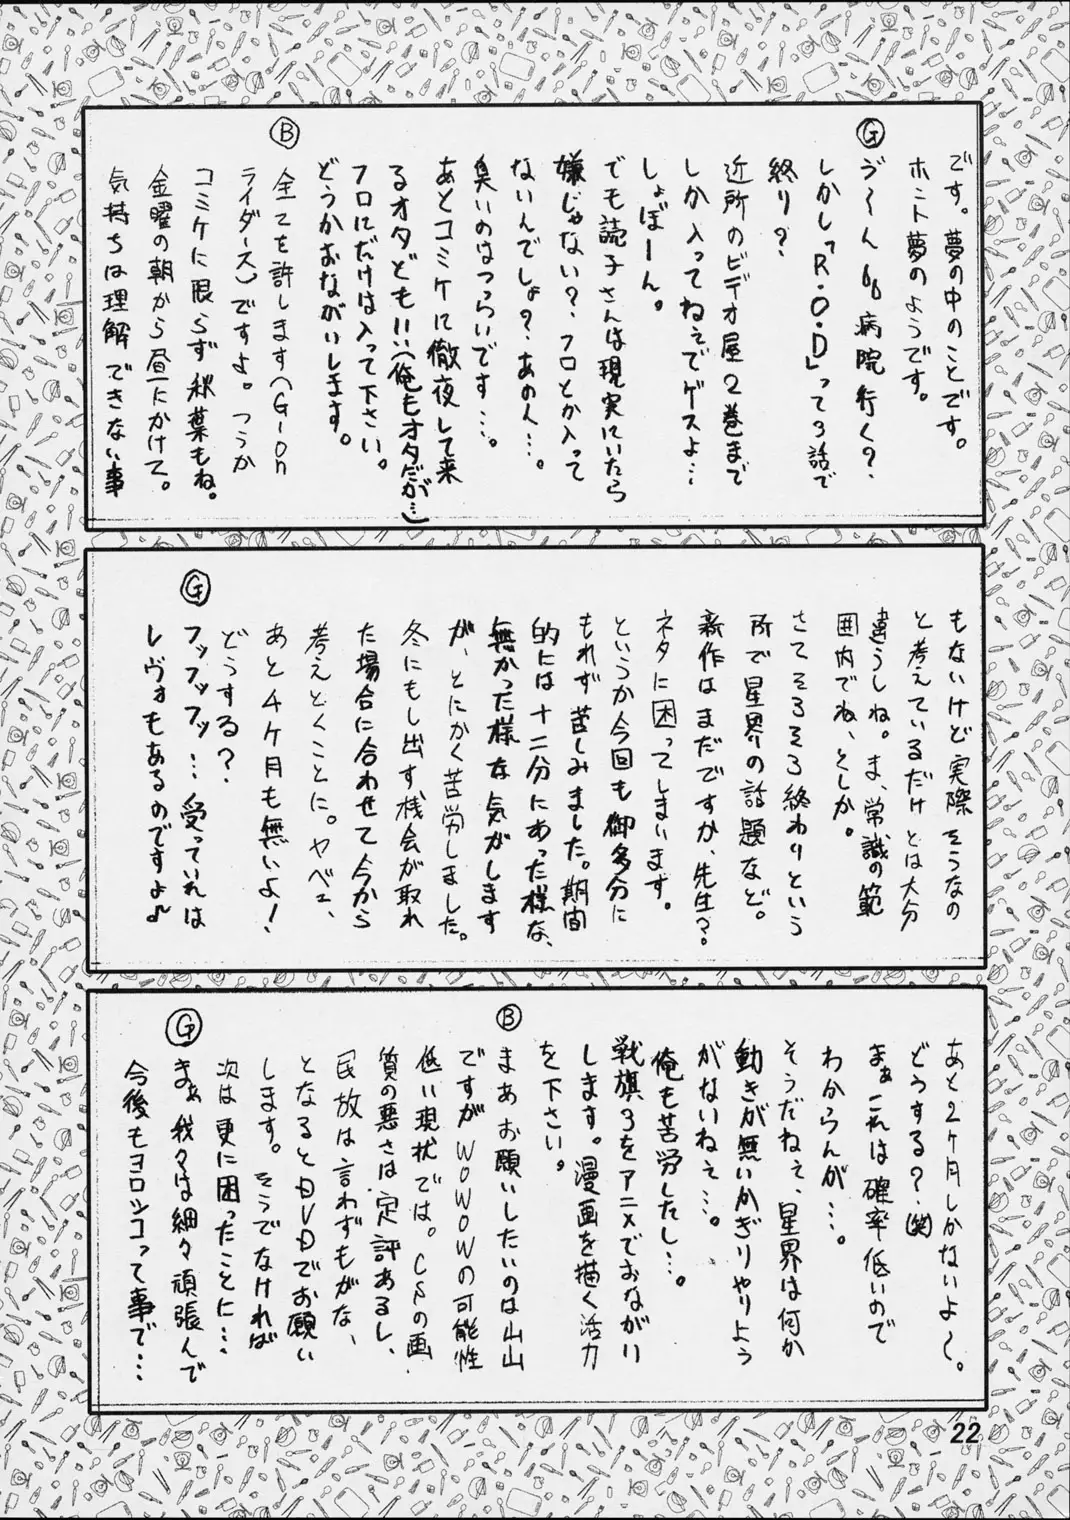 です。夢の中のことです。
ホント夢のようです。
Ⓖ
う〜ん 病院行く?
しかし「R・O・D」って3話で
終り?
近所のビデオ屋2巻まで
しか入ってねぇでゲスよ…
しょぼーん。
でも読子さんは現実にいたら
嫌じゃない?、フロとか入って
ないんでしょ?、あの人…。
臭いのはつらいです…。
あとコミケに徹夜して来
るオタども!!(俺もオタだが…)
フロにだけは入って下さい。
どうかおながいします。
Ⓑ
全てを許します(G-on
ライダース)ですよ。つうか
コミケに限らず秋葉もね。
金曜の朝から昼にかけて。
気持ちは理解できない事
もないけど実際そうなの
と考えているだけとは大分
違うしね。ま、常識の範
囲内でね、としか。
さてそろそろ終わりという
所で星界の話題など。
新作はまだですか、先生?。
ネタに困ってしまいます。
というか今回も御多分に
もれず苦しみました。期間
的には十二分にあった様な、
無かった様な気がします
が、とにかく苦労しました。
冬にもし出す機会が取れ
た場合に合わせて今から
考えとくことに。ヤベェ、
あと4ヶ月も無いよ!
どうする?
Ⓖ
フッフッフッ…受っていれば
レヴォもあるのですよ♪
あと2ヶ月しかないよ〜。
どうする?(笑)
まぁこれは確率低いので
わからんが…。
そうだねぇ、星界は何か
動きが無いかぎりやりよう
がないねぇ…。
俺も苦労したし…。
戦旗3をアニメでおながい
します。漫画を描く活力
を下さい。
Ⓑ
まあお願いしたいのは山山
ですがWOWOWの可能性
低い現状では。CSの画
質の悪さは定評あるし、
民放は言わずもがな、
となるとDVDでお願い
します。そうでなければ
次は更に困ったことに…
Ⓖ
まぁ我々は細々頑張んで
今後もヨロシコって事で…
22